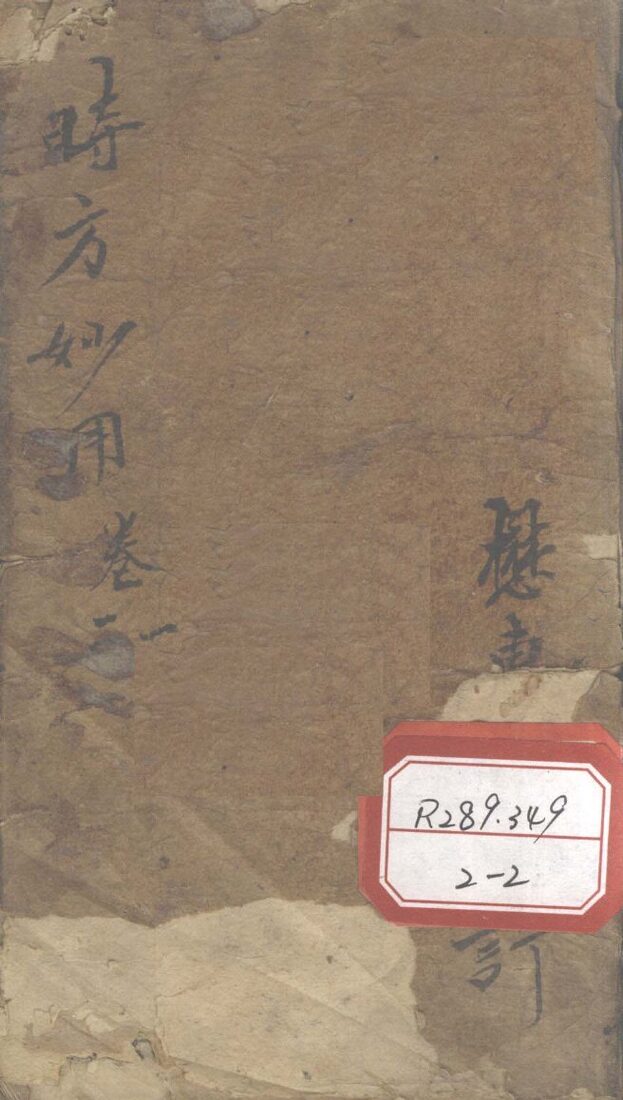 時方妙用 卷二
懋
訂
R289.349
2-2